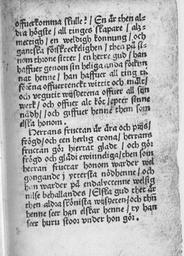 offuerkomma skulle? / En är then al-
dra högste / all tinges skapare / al-
metegh / en weldigh konung / och
ganska forskreckeligh / then på si-
nom throne sitter / en herre gud / han
haffuer genom sin heliga anda
nar henne / han haffuer all ting
och wtgutit wijsdomena offuer all sijn
werk / och offuer alt kött / epter sijne
nådh / och giffuer henne them som
elska honom.
Herrans fructan är ära och prijs /
frögd / och een herlig crona / herrans
fructan gör hiertat gladt / och gör
frögd och glädi ewinneliga / then som
herran fructar honom warder wel
gongande j ytersta nödhenne / och
han warder på endalyctenne welsig-
nilse behallandes / Elska gud thet är
then aldra skönista wijsdomen / och th
henne seer han elskar henne / ty han
seer huru stoor under hon gör.